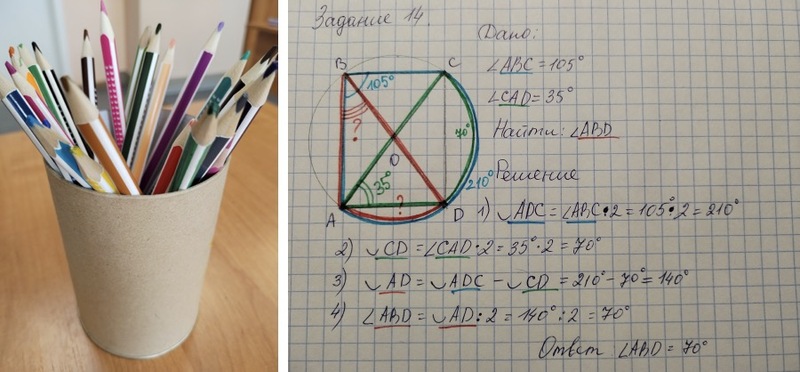 Задание 14
Дано:
∠ABC = 105°
∠CAD = 35°
Найти: ∠ABD
B
C
105°
?
70°
O
35°
?
210°
A
D
Решение
1) ◡ADC = ∠ABC·2 = 105°·2 = 210°
2) ◡CD = ∠CAD·2 = 35°·2 = 70°
3) ◡AD = ◡ADC - ◡CD = 210° - 70° = 140°
4) ∠ABD = ◡AD:2 = 140°:2 = 70°
Ответ ∠ABD = 70°